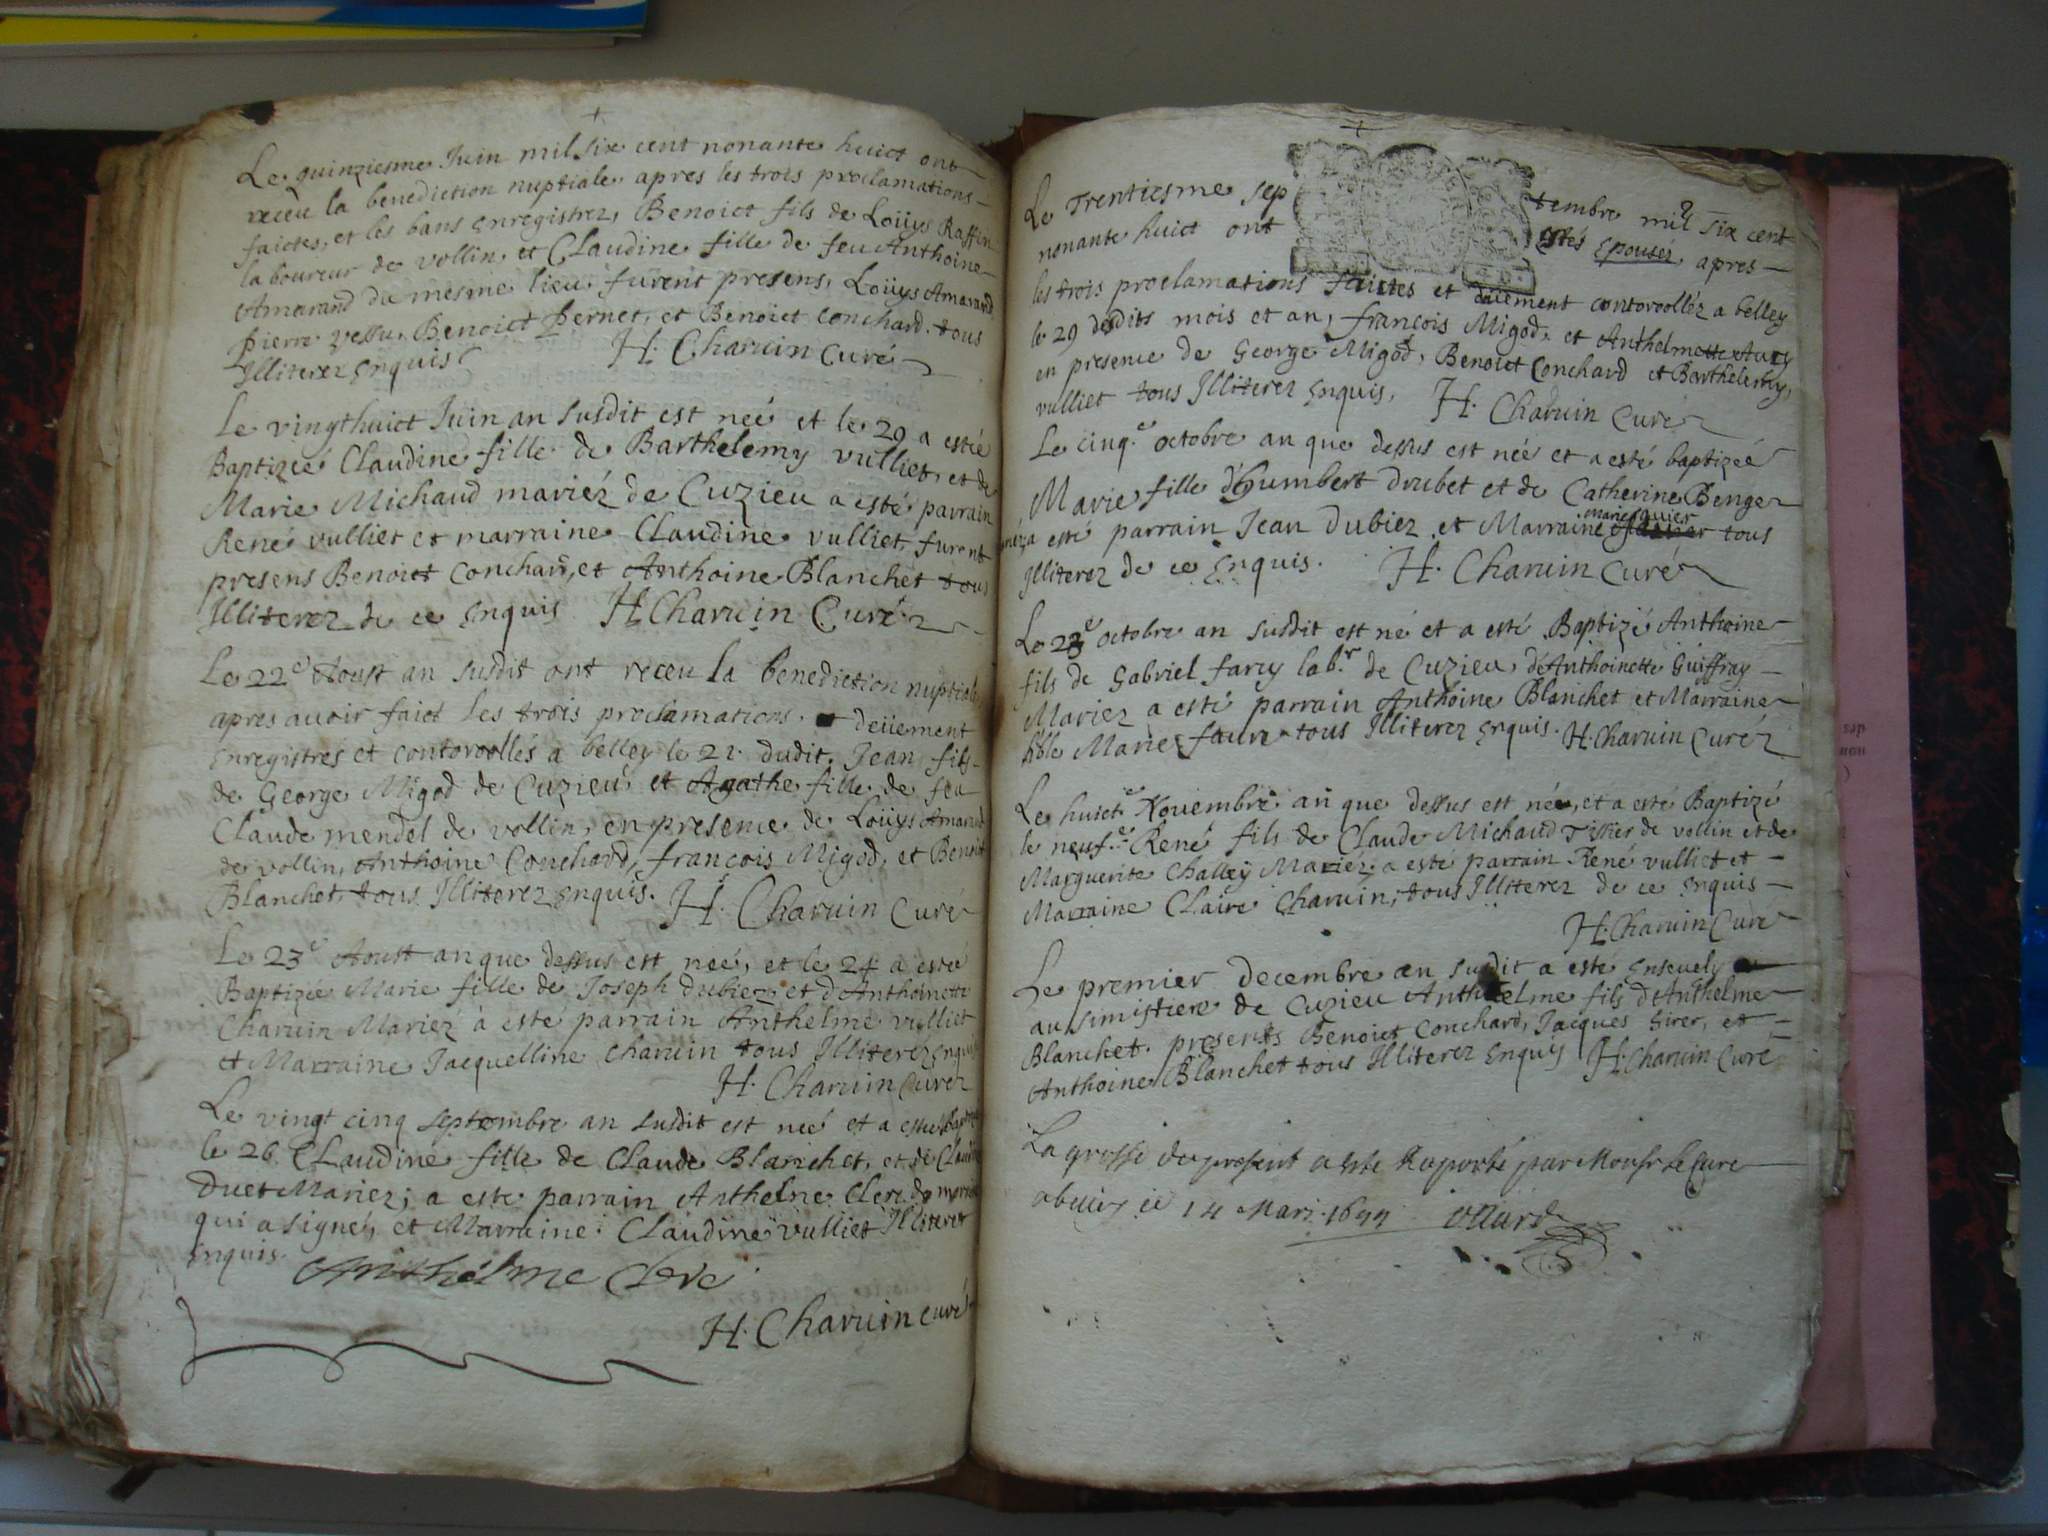 Le quinziesme Juin mil six cent nonante huict ont
receu la benediction nuptiale apres les trois proclamations
faictes, et les bans enregistrez, Benoict fils de Loüys Raffin
laboureur de vollin, et Claudine fille de feu Anthoine
Amarand du mesme lieu furent presens, Loüys Amarand
pierre vessu, Benoict pernet, et Benoict Conchard tous
Illiterez Enquis
H. Charuin Curé
Le vingthuict Juin an susdit est neé et le 29 a estée
Baptizeé Claudine fille de Barthelemy vulliet, et de
Marie Michaud mariéz de Cuzieu a esté parrain
René vulliet et marraine Claudine vulliet, furent
presens Benoict Conchard, et Anthoine Blanchet tous
Illiterez de ce Enquis H. Charuin Curé
Le 22e Aoust an susdit ont receu la benediction nuptiale
apres auoir faict les trois proclamations deüement
Enregistres et controollés a belley le 21 dudit. Jean fils
de George Migod de Cuzieu et Agathe fille de feu
Claude mendel de vollin, en presence de Loüys Amarand
de vollin, Anthoine Conchard, françois Migod, et Benoict
Blanchet, tous Illiterez Enquis. H. Charuin Curé
Le 23e Aoust an que dessus est neé, et le 24 a esté
Baptizée Marie fille de Joseph dubiez et d'Anthoinette
Charuin Mariéz à esté parrain Anthelme vulliet
et Marraine Jacquelline Charuin tous Illiterez Enquis
H. Charuin Curé
Le vingt cinq septembre an susdit est neé et a esté Baptizée
le 26 Claudine fille de Claude Blanchet, et de Claudine
Duet Mariez; a este parrain Anthelme Clerc de
qui a signé, et Marraine Claudine vulliet Illiteret
Enquis.
Anthelme Clerc
H. Charuin curé
Le Trentiesme septembre mil six cent
nonante huict ont estés Epousés apres
les trois proclamations faictes et deüement controolléz a belley
le 29 desdits mois et an, françois Migod, et Anthelmette
en presence de George Migod, Benoict Conchard et Barthelemy
vulliet tous Illiterez Enquis. H. Charuin Curé
Le cinq.e octobre an que dessus est née et a esté baptizeé
Marie fille d'humbert drubet et de Catherine Benger
a esté parrain Jean dubiez et Marraine marie tous
Illiterez de ce Enquis. H. Charuin Curé
Le 23e octobre an susdit est né et a esté Baptizé Anthoine
fils de Gabriel farcy lab.r de Cuzieu, d'Anthoinette Guiffray
Mariez a esté parrain Anthoine Blanchet et Marraine
Marie faure tous Illiterez Enquis. H. Charuin Curé
Le huict.e Nouembre an que dessus est né, et a esté Baptizé
le neuf.e René fils de Claude Michaud Tissier de vollin et de
Marguerite Challey Mariéz; a esté parrain René vulliet et
Marraine Claire Charuin, tous Illiterez de ce Enquis
H. Charuin Curé
Le premier decembre an susdit a esté Enseuely
au simistiere de Cuzieu Anthelme fils d'Anthelme
Blanchet. presents Benoict Conchard, Jacques Sirer, et
Anthoine Blanchet tous Illiterez Enquis H. Charuin Curé
La grosse du present a esté Raporté par Monsr le Cure
le 14 Mars 1699